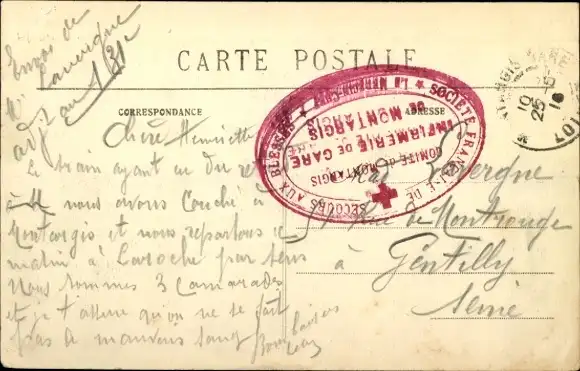 Envoi de
Mr Lavergne
adjt au 131e
CARTE POSTALE
CORRESPONDANCE
ADRESSE
MONTARGIS GARE
10
25-5
16
LOIRET
SOCIÉTÉ FRANÇAISE DE SECOURS AUX BLESSÉS
COMITÉ DE MONTARGIS
INFIRMERIE DE GARE
DE MONTARGIS
Chère Henriette
Le train ayant eu du re
nous avons Couché à
Montargis et nous repartons ce
matin à Laroche par Sens
Nous sommes 3 Camarades
et je t'assure qu'on ne se fait
pas de mauvais sang
Bons baisers
Lavergne
Rue de Montrouge
à Gentilly
Seine